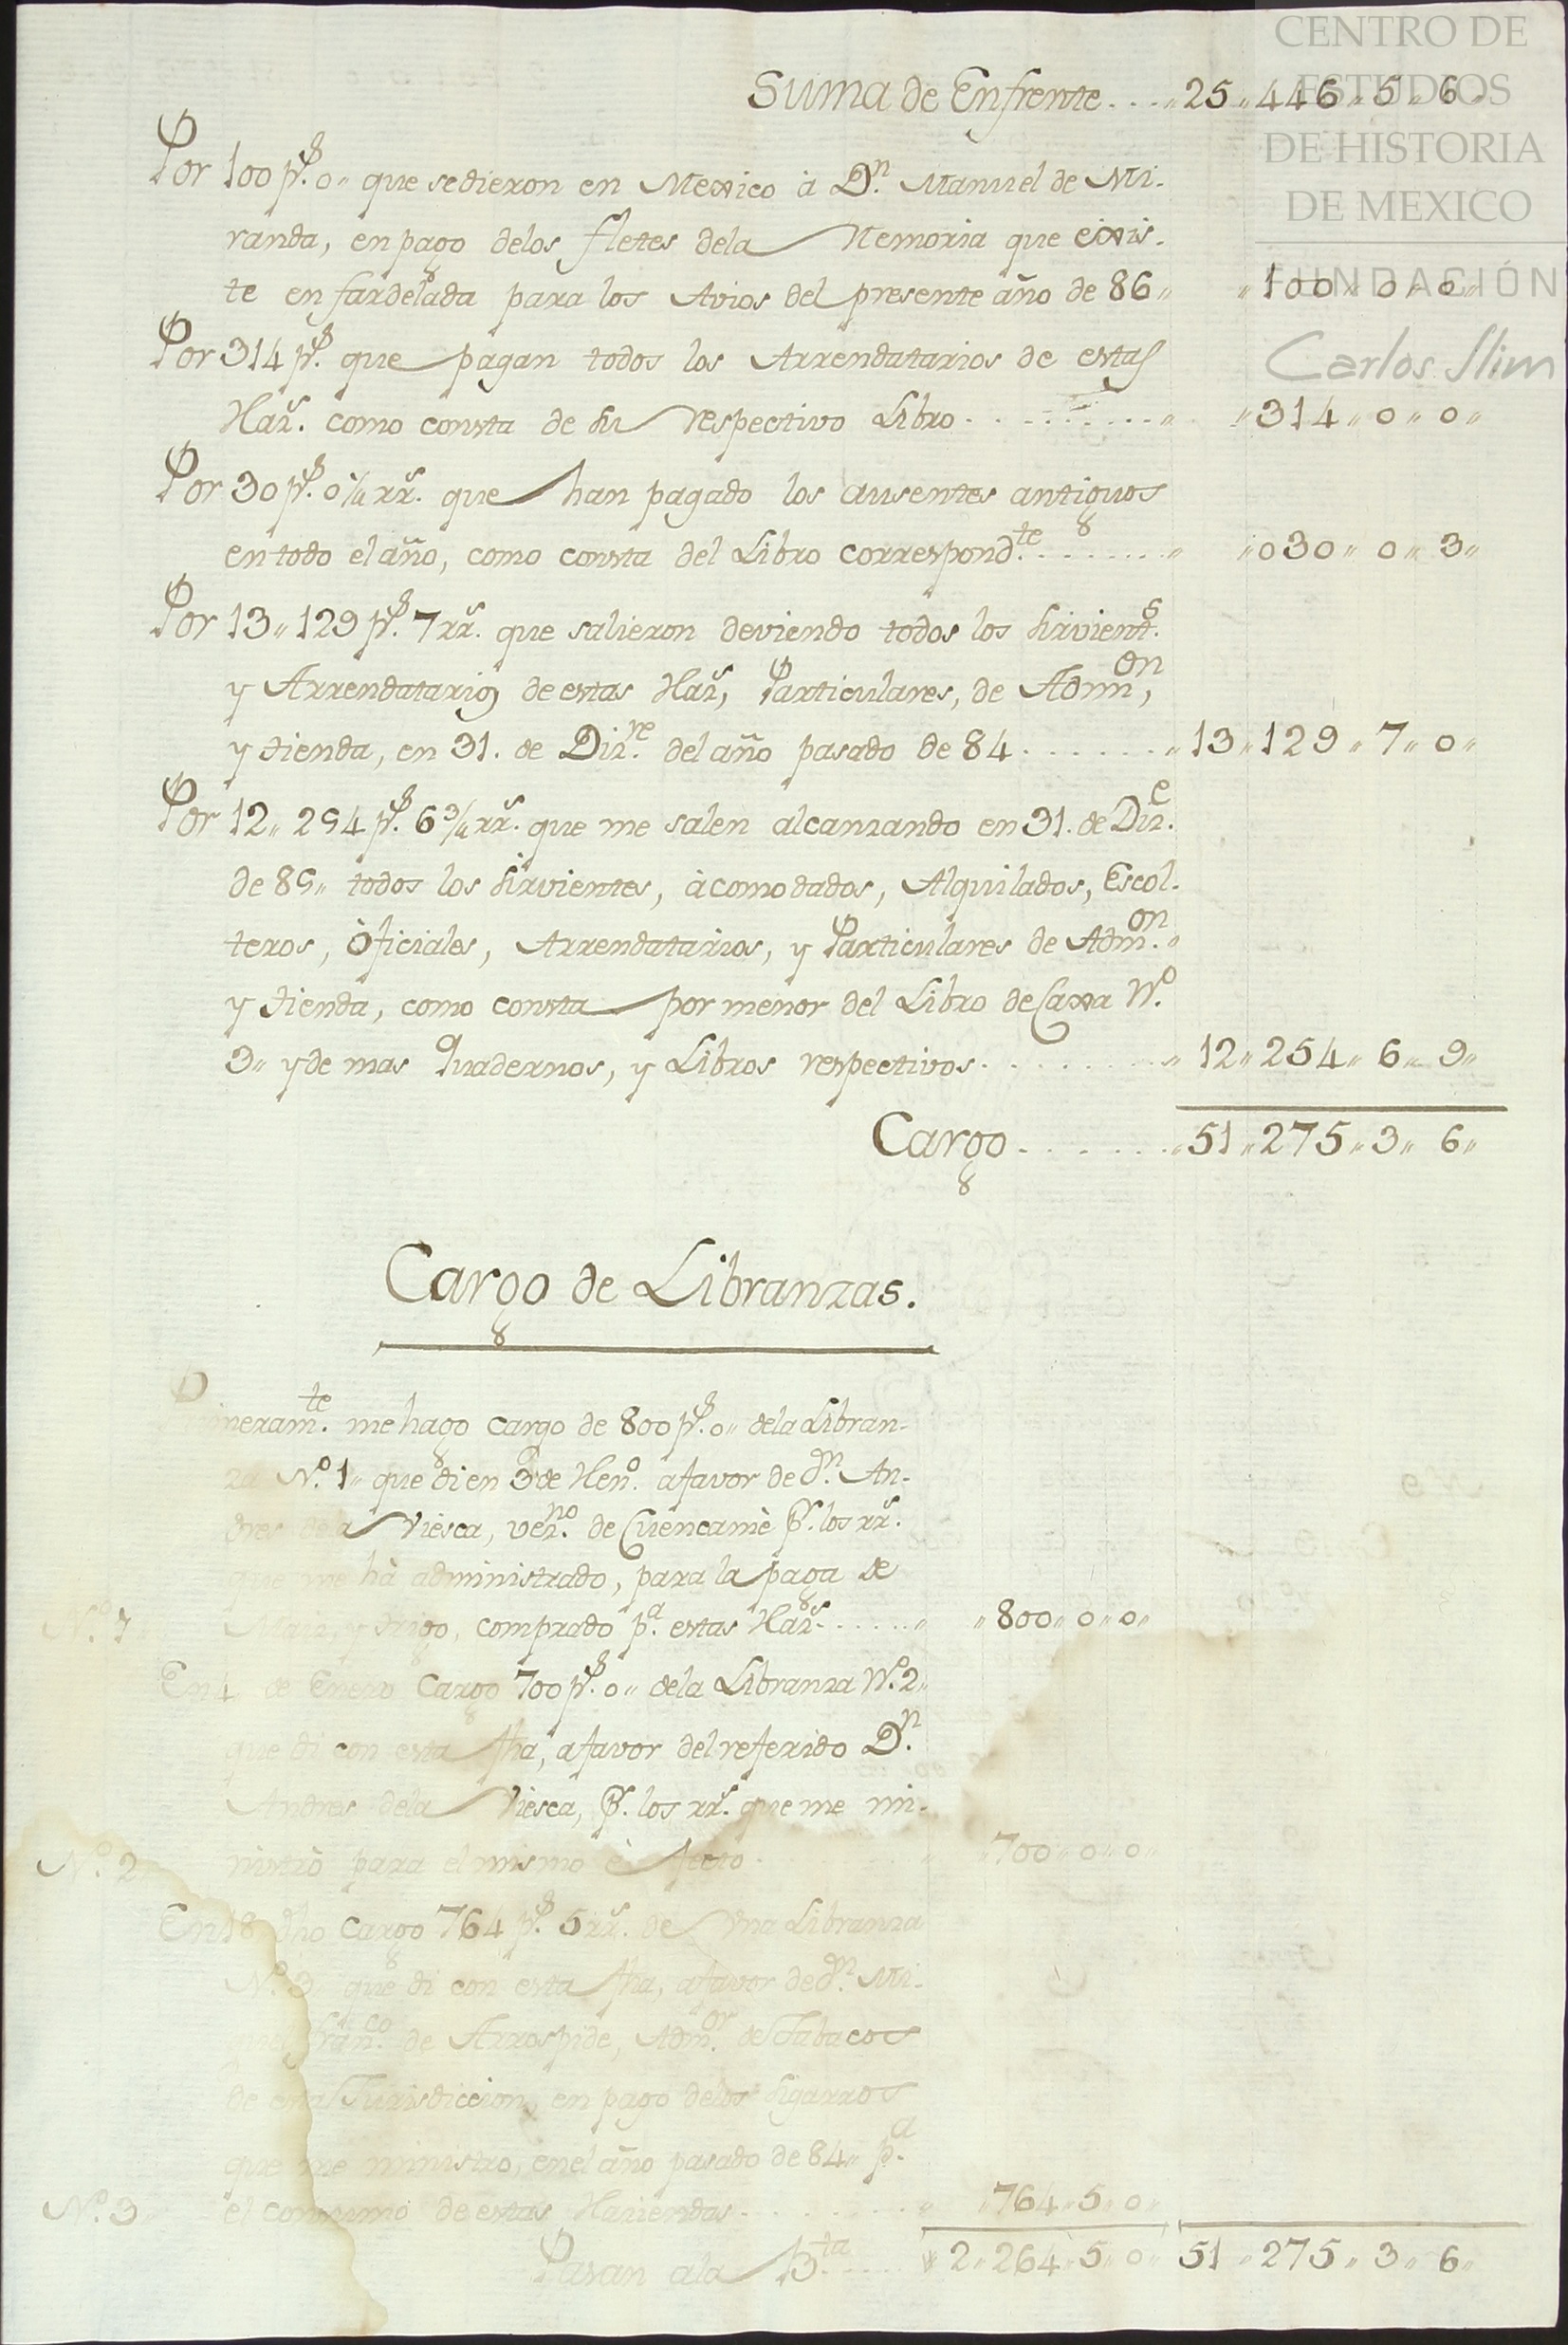 CENTRO DE
ESTUDIOS
DE HISTORIA
DE MEXICO
FUNDACIÓN
Carlos Slim
Suma de Enfrente.... 25,,446,,5,,6,,
Por 100 p.s 0,, que se dieron en Mexico à D.n Manuel de Mi-
randa, en pago delos fletes dela Memoria que exis-
te enfardelada para los Avios del presente año de 86,, ,,100,,0,,0,,
Por 314 p.s que pagan todos los Arrendatarios de estas
Haz.s como consta de su respectivo Libro........ ,,314,,0,,0,,
Por 30 p.s 0¼ rr.s que han pagado los ausentes antiguos
en todo el año, como consta del Libro correspond.te....... ,,030,,0,,3,,
Por 13,,129 p.s 7 rr.s que salieron deviendo todos los sirvient.s
y Arrendatarios de estas Haz.s, Particulares, de Adm.on,
y tienda, en 31. de Diz.re del año pasado de 84...... ,,13,,129,,7,,0,,
Por 12,,254 p.s 6¾ rr.s que me salen alcanzando en 31. de Diz.e
de 85,, todos los sirvientes, àcomodados, Alquilados, Escol-
teros, òficiales, Arrendatarios, y Particulares de Adm.on,,
y tienda, como consta por menor del Libro de Caxa N.o
3,, y de mas quadernos, y Libros respectivos........ ,,12,,254,,6,,9,,
Cargo...... ,,51,,275,,3,,6,,
Cargo de Libranzas.
Primeram.te me hago cargo de 800 p.s 0,, dela Libran-
za N.o 1,, que di en 3 de Hen.o a favor de d.n An-
dres dela Viesca, vez.no de Cuencamè p.r los rr.s
que me hà administrado, para la paga de
N.o 1 Maiz, y trigo, comprado p.a estas Haz.s..... ,,800,,0,,0,,
En 4 de Enero Cargo 700 p.s 0,, dela Libranza N.o 2,,
que di con esta fha, a favor del referido D.n
Andres dela Viesca, p.r los rr.s que me mi-
N.o 2 nistrò para el mismo èfecto. ,,700,,0,,0,,
En 18 dho Cargo 764 p.s 5 rr.s de Una Libranza
N.o 3 que di con esta fha, a favor de d.n Mi-
guel Fran.co de Arrospide, Adm.or de Tabacos
de esta Jurisdiccion, en pago delos sigarros
que me ministro, en el año pasado de 84,, p.a
N.o 3 el consumo de estas Haziendas........ ,,764,,5,,0,,
Pasan ala B.ta..... 2,,264,,5,,0,, 51,,275,,3,,6,,